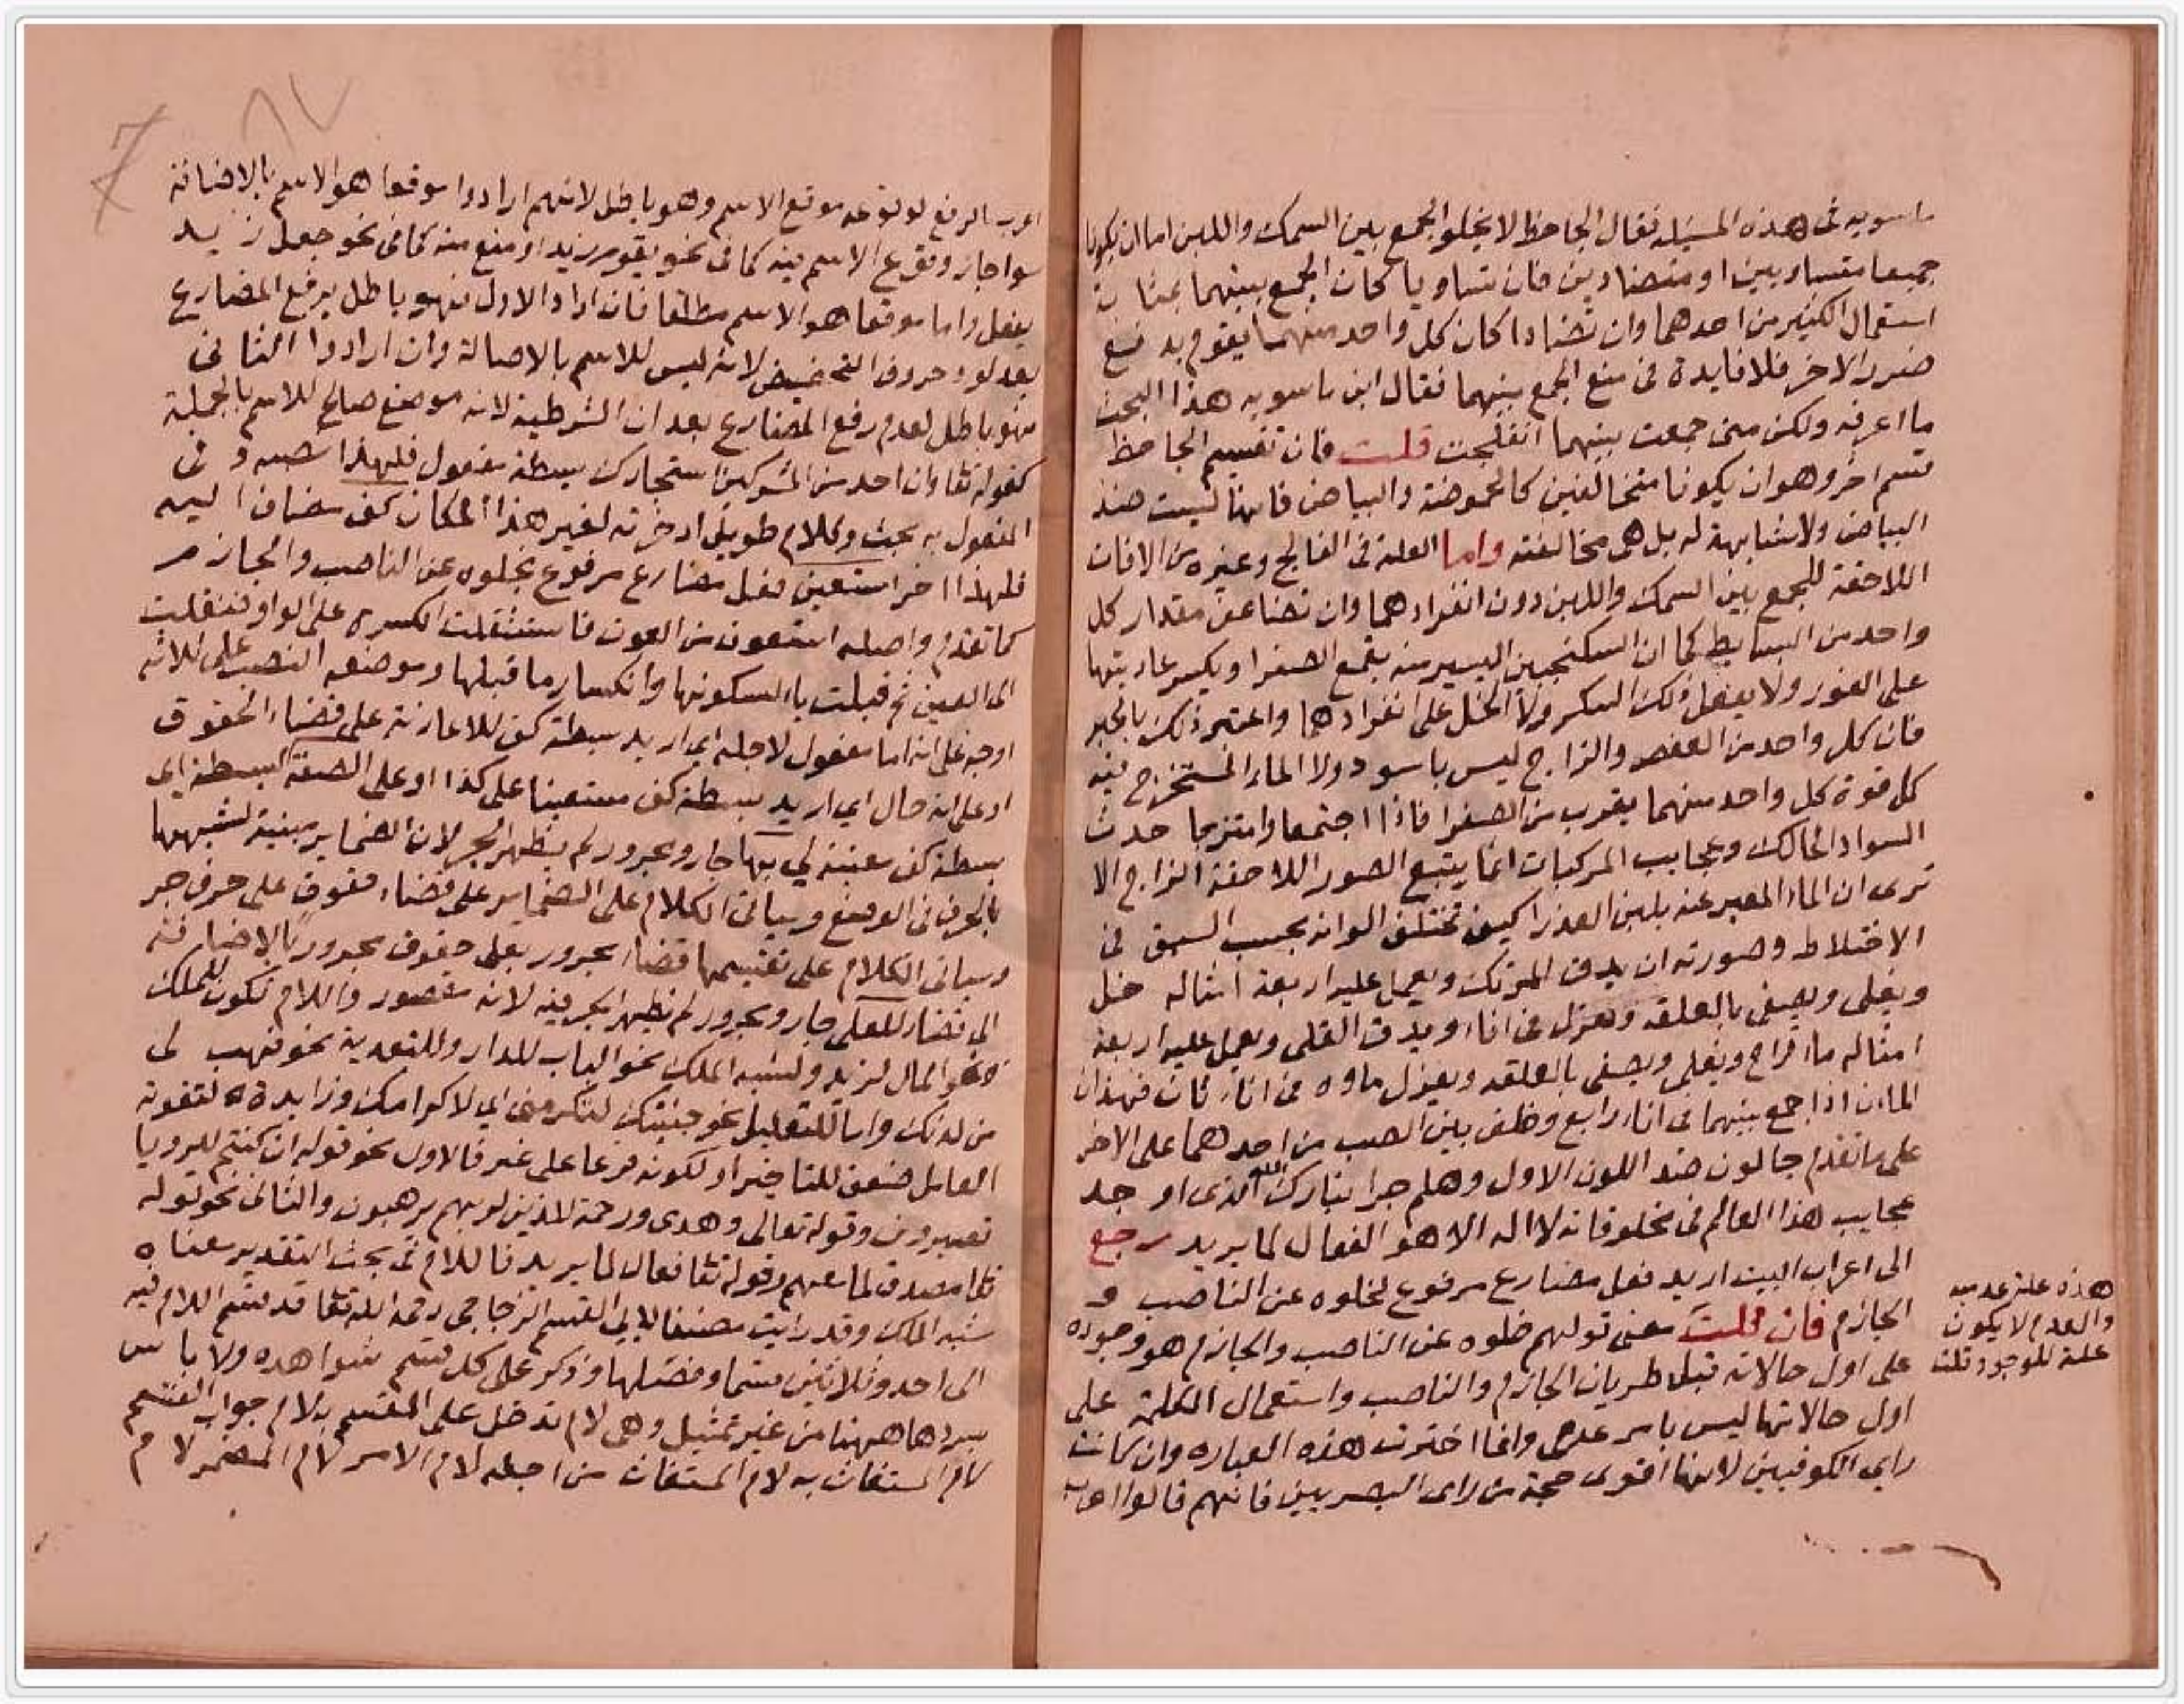 ماسويه في هذه المسئله فقال الجاحظ لا يخلو الجمع بين السمك واللبن اما ان يكونا
جميعا متساويين او متضادين فان تساويا كان الجمع بينهما بمثابة
استعمال الكثير من احدهما وان تضادا كان كل واحد منهما يقوم بدفع
ضرر الاخر فلا فايدة في منع الجمع بينهما فقال ابن ماسويه هذا البحث
ما اعرفه ولكن متى جمعت بينهما انفلجت قلت فان تقسيم الجاحظ
قسم اخر وهو ان يكونا متخالفين كالحموضة والبياض فانها ليست ضد
البياض ولا مشابهة له بل هي مخالفته واما العلة في الفالج وغيره من الافات
اللاحقة للجمع بين السمك واللبن دون انفرادهما وان تضاعف مقدار كل
واحد من البسايط كما ان السكنجبين اليسير منه يقمع الصفرا ويكسر عاديتها
على الفور ولا يفعل ذلك السكر ولا الخل على انفرادهما واعتبر ذلك بالحبر
فان كل واحد من العفص والزاج ليس باسود ولا الماء المستخرج فيه
كل قوة كل واحد منهما يقرب من الصفرا فاذا اجتمعا وامتزجا حدث
السواد الحالك وعجايب المركبات انما يتبع الصور اللاحقة المزاج الا
ترى ان الماء المعبر عنه بلبن العذرا كيف تختلف الوانه بحسب السبق في
الاختلاط وصورته ان يدق المرتك ويعمل عليه اربعة امثاله خل
ويغلى ويصفى بالعلقه ويعزل في اناء ويدق القلي ويعمل عليه اربعة
امثاله ماء قراح ويغلى ويصفى بالعلقه ويعزل ماوه في اناء ثان فهذان
الماءان اذا جمع بينهما في اناء رابع وظف بين الصب من احدهما على الاخر
على ما تقدم جا لون ضد اللون الاول وهلم جرا تبارك الله الذي اوجد
عجايب هذا العالم في مخلوقاته لا اله الا هو الفعال لما يريد رجع
الى اعراب البيت اريد فعل مضارع مرفوع لخلوه عن الناصب و
الجازم فان قلت معنى قولهم خلوه عن الناصب والجازم هو وجوده
على اول حالاته قبل طريان الجازم والناصب واستعمال الكلمة على
اول حالاتها ليس بامر عدمي وانما اخترت هذه العباره وان كانت
راي الكوفيين لانها اقوى حجة من راي البصريين فانهم قالوا اعرب
هذه علة عدميه
والعدم لا يكون
علة للوجود قلت
اعرب الرفع لوقوعه موقع الاسم وهو باطل لانهم ارادوا موقعا هو الاسم بالاصالة
سوا جاز وقوع الاسم فيه كما في نحو يقوم زيد او منع منه كما في نحو جعل زيد
يفعل واما موقعا هو الاسم مطلقا فان ارادوا الاول فهو باطل برفع المضارع
بعد لو وحروف التحضيض لانه ليس للاسم بالاصالة وان ارادوا الثاني
فهو باطل لعدم رفع المضارع بعد ان الشرطية لانه موضع صالح للاسم بالجملة
كقوله تعا وان احد من المشركين استجارك بسطة مفعول فلهذا نصبه وفي
المفعول به بحث وكلام طويل ادخرته لغير هذا المكان كف مضاف اليه
فلهذا اخر استعين فعل مضارع مرفوع بخلوه عن الناصب والجازم
كما تقدم واصله استعون من العون فاستثقلت الكسرة على الواو فنقلت
الى العين ثم قبلت ياء لسكونها وانكسار ما قبلها وموضعه النصب على ثلاثة
اوجه على انه اما مفعول لاجله اي اريد بسطة كف للاعانة على قضاء الحقوق
او على انه حال اي اريد بسطة كف مستعينا على كذا او على الصفة لبسطة اي
بسطة كف معينة لي بها جار ومجرور لم يظهر الجر لان الضماير مبنية لشبهها
بالحرف في الوضع وسياتي الكلام على الضماير على قضاء حقوق على حرف جر
وسياتي الكلام على تقسيمها قضاء مجرور بعلى حقوق مجرور بالاضافة
الى قضاء للعلى جار ومجرور لم يظهر الجر فيه لانه مقصور واللام تكون للملك
نحو المال لزيد ولشبه الملك نحو الباب للدار وللتعدية نحو فهب لي
من لدنك وليا للتعليل نحو جيتك لتكرمني اي لاكرامك وزايدة لتقوية
العامل ضعف للتاخير او لكونه فرعا على غير فالاول نحو قوله ان كنتم للرويا
تعبرون وقوله تعالى وهدى ورحمة للذين لربهم يرهبون والثاني نحو قوله
تعا مصدق لما معهم وقوله تعا فعال لما يريد فاللام في بحث التقدير معناه
شبه الملك وقد رايت مصنفا لابي القسم الزجاجي رحمه الله تعا قد قسم اللام فيه
الى احد وثلاثين قسما وفصلها وذكر على كل قسم شواهده ولا باس
بسردها ههنا من غير تمثيل وهي لام تدخل على المقسم به لام جواب القسم
لام المستغاث به لام المستغاث من اجله لام الامر لام المضمر لام